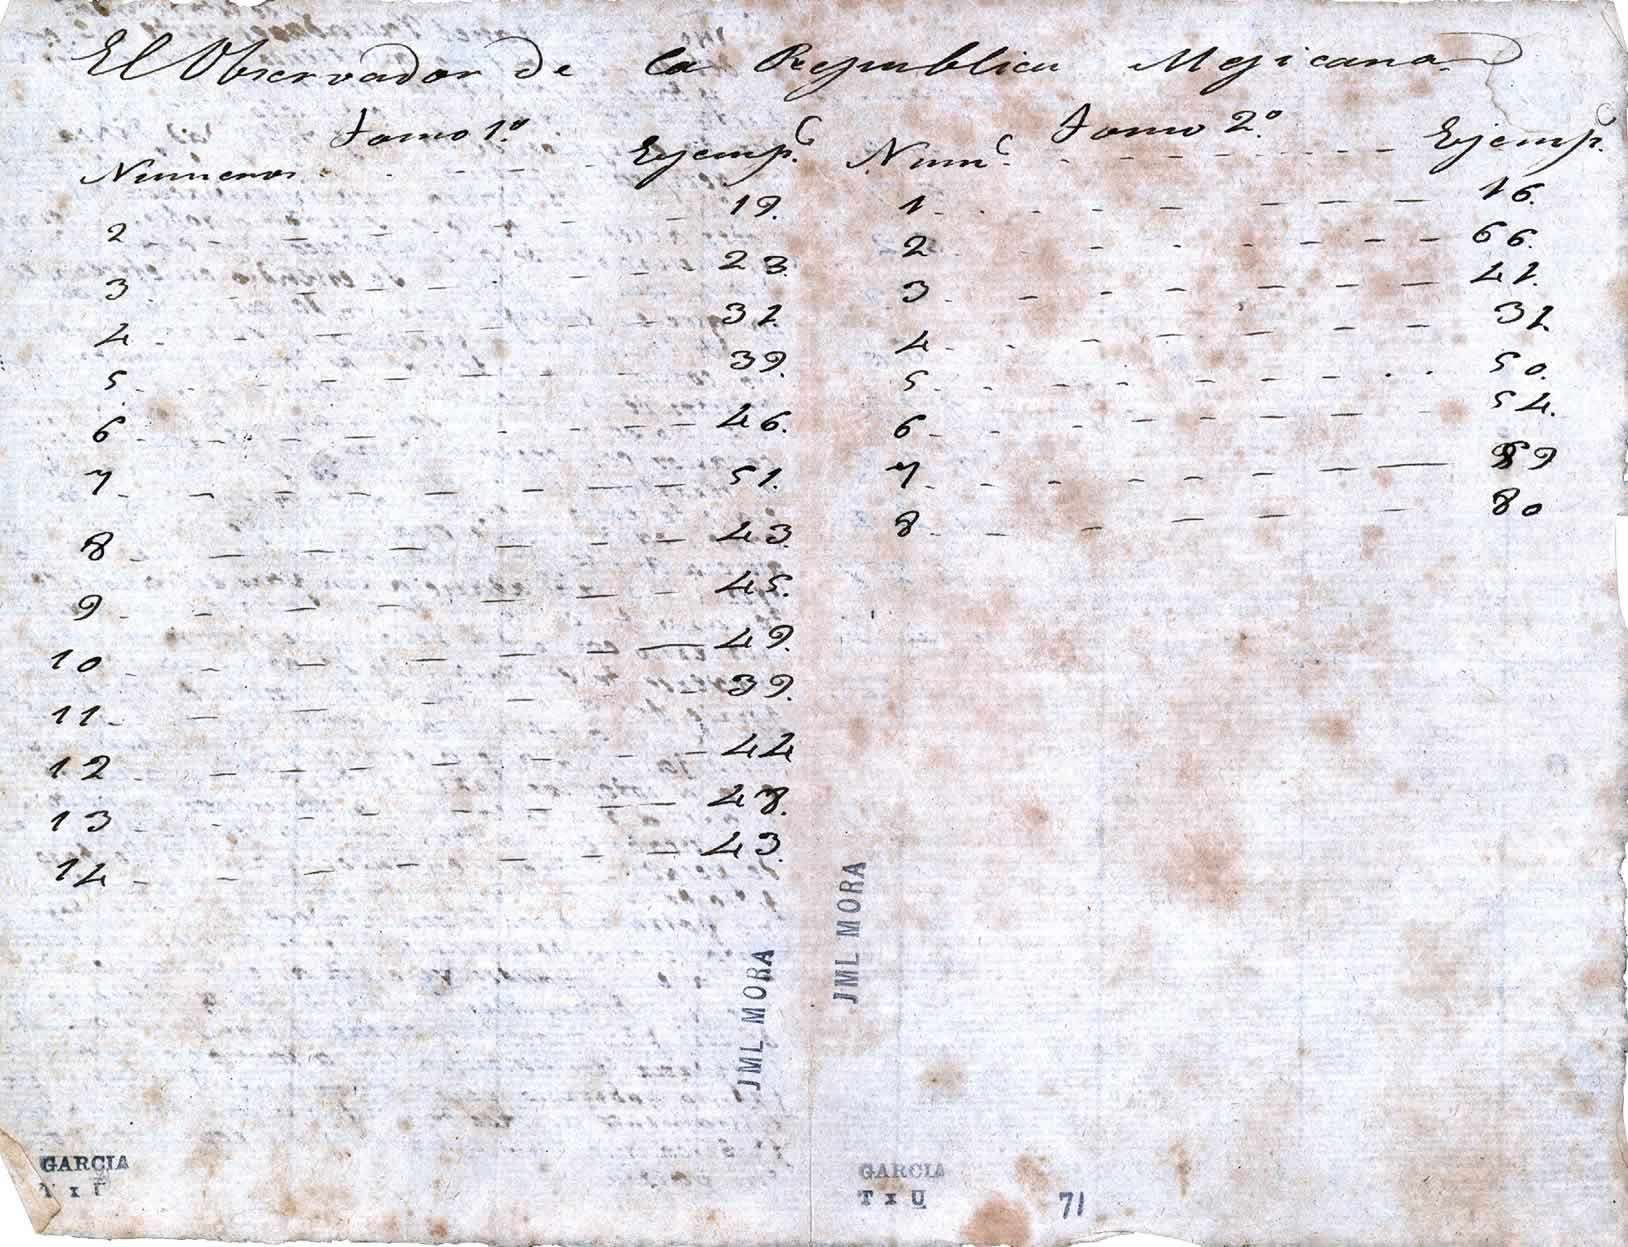 El Observador de la Republica Mejicana
Tomo 1.º
Numeros - - - - Ejemp.s
2 - - - - 19.
3 - - - - 23.
4 - - - - 31.
5 - - - - 39.
6 - - - - 46.
7 - - - - 51.
8 - - - - 43.
9 - - - - 45.
10 - - - - 49.
11 - - - - 39.
12 - - - - 44
13 - - - - 48.
14 - - - - 43.
Tomo 2.º
Num.s - - - - Ejemp.s
1 - - - - 16.
2 - - - - 66.
3 - - - - 41.
4 - - - - 31.
5 - - - - 50.
6 - - - - 54.
7 - - - - 89
8 - - - - 80
JML MORA
JML MORA
GARCIA
GARCIA
71